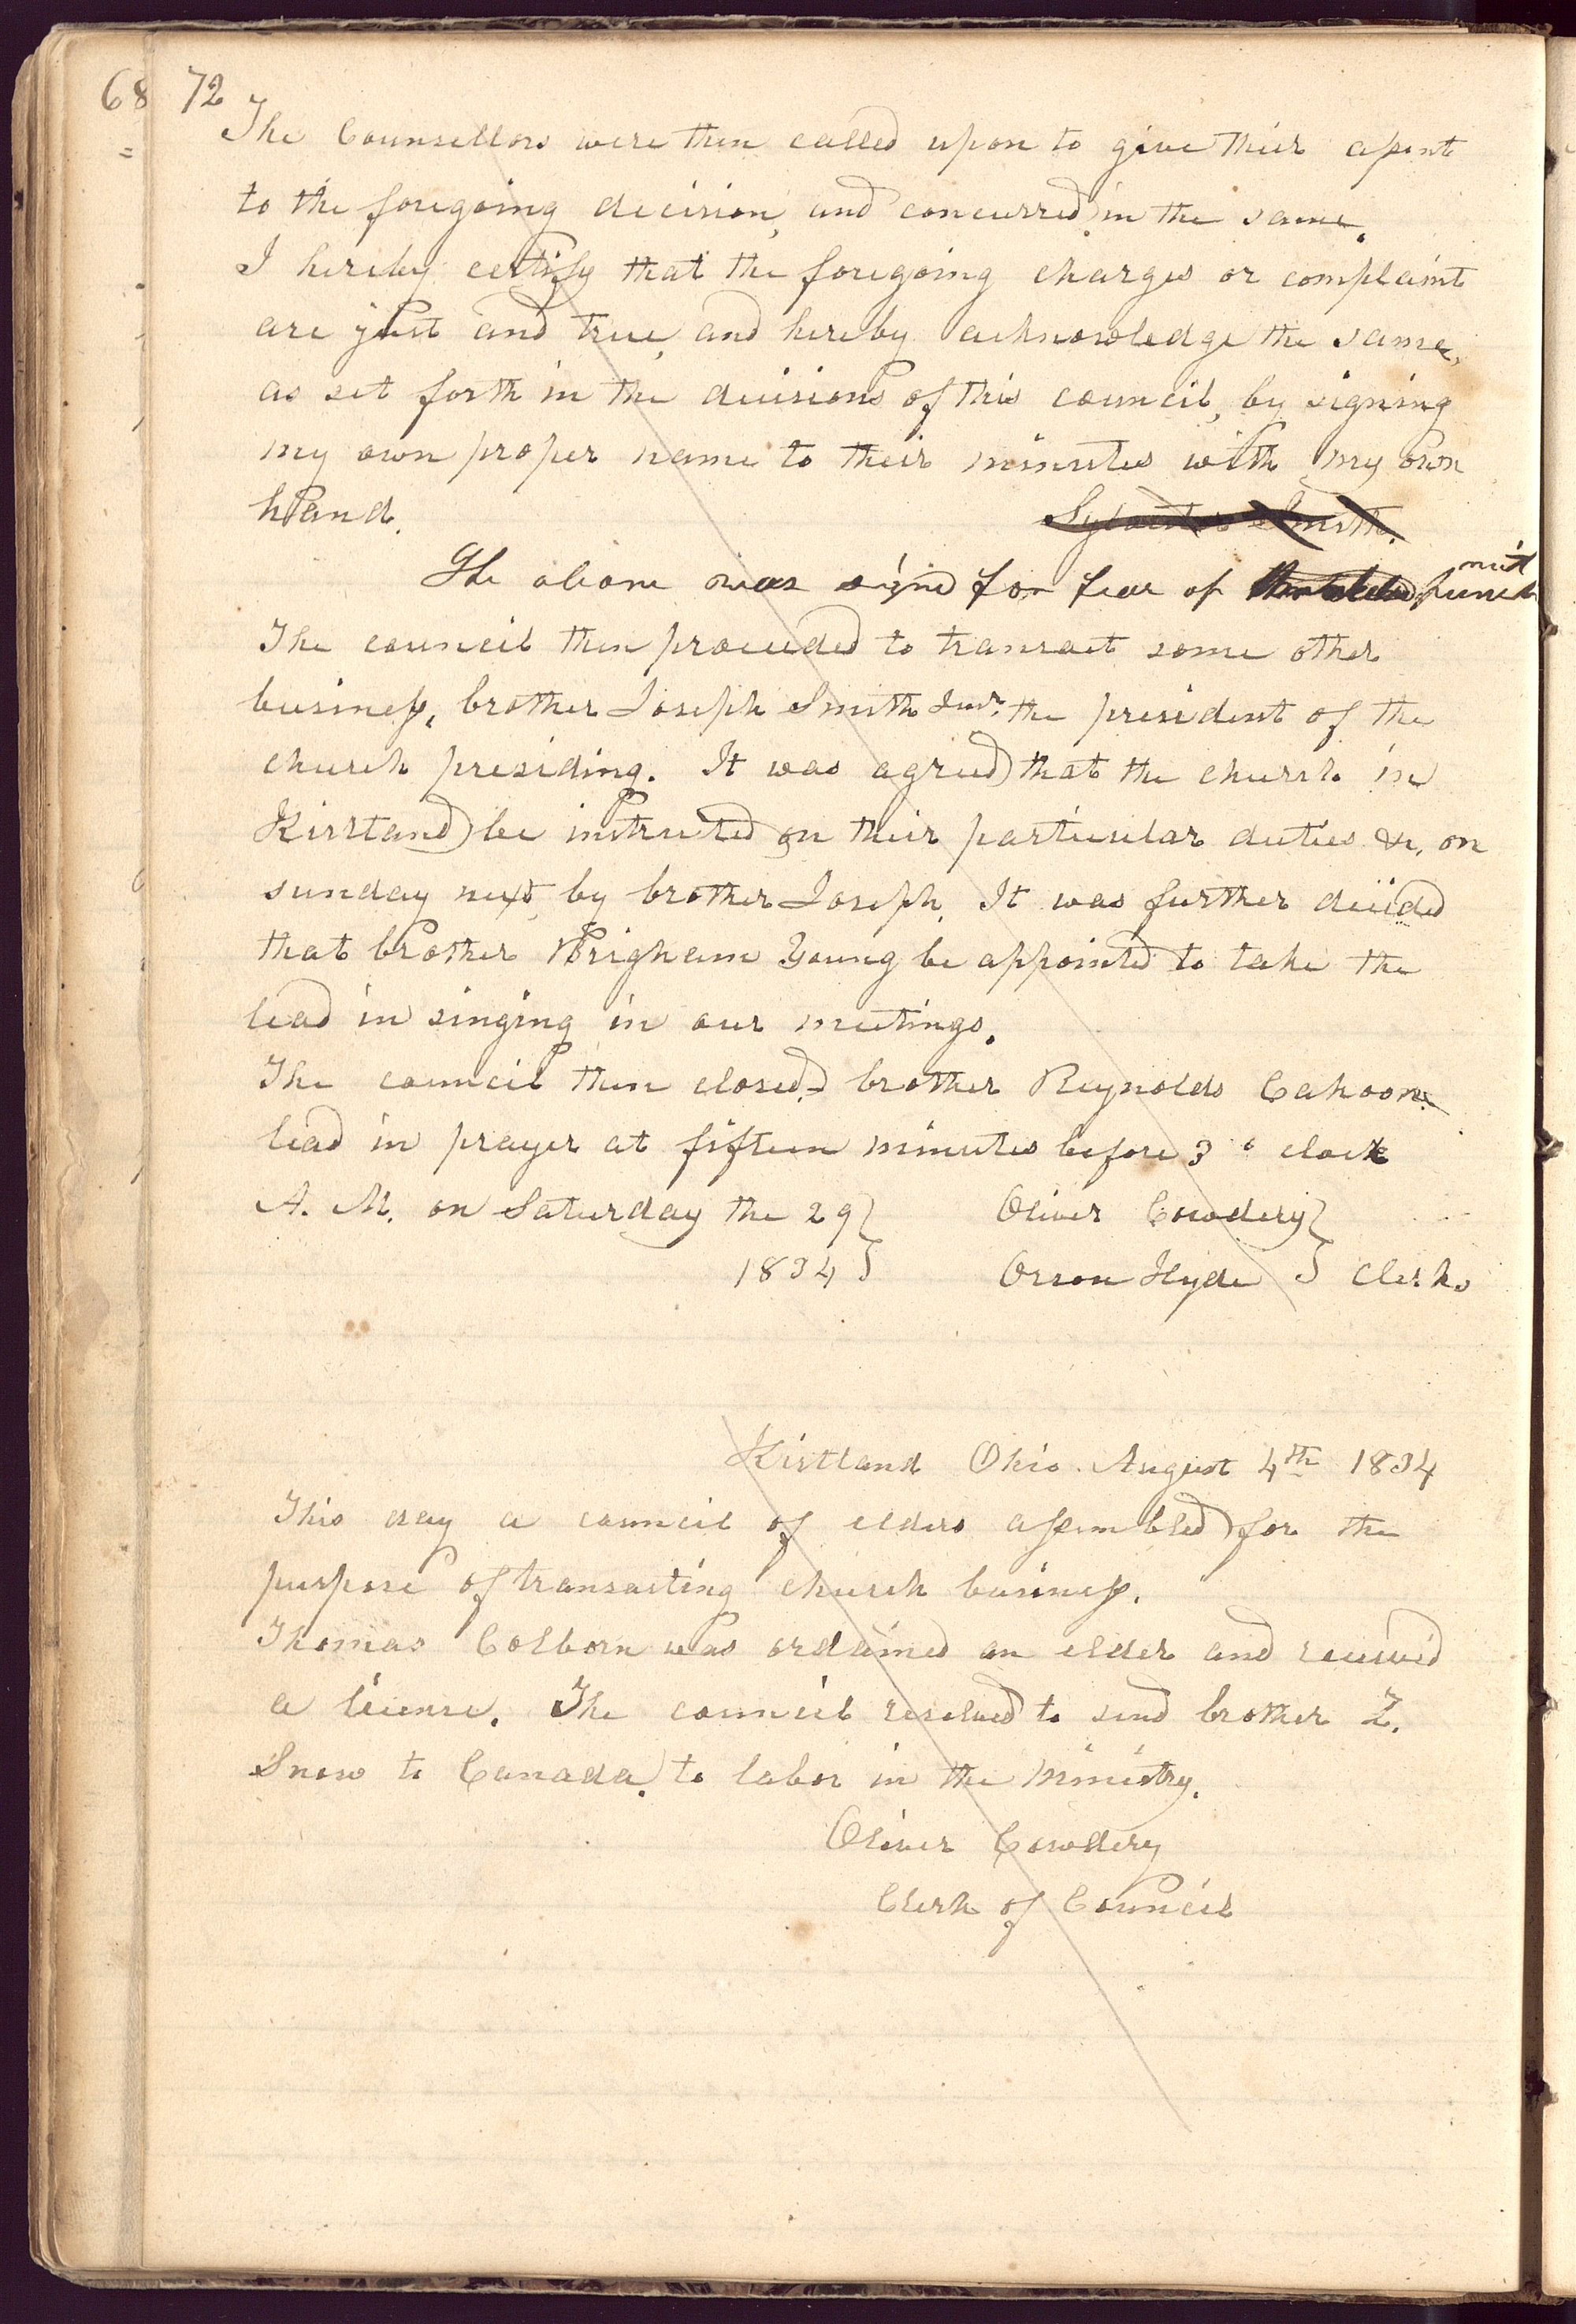 68 72
The Counsellors were then called upon to give their assent
to the foregoing decision, and concurred in the same.
I hereby certify that the foregoing charges or complaint
are just and true, and hereby acknowledge the same,
as set forth in the decisions of this council, by signing
my own proper name to their minutes with my own
hand. Sylvester Smith.
The above was signd for fear of punish
ment
The council then proceeded to transact some other
business, brother Joseph Smith Junr. the president of the
church presiding. It was agreed that the church in
Kirtland be instructed on their particular duties &c. on
sunday next, by brother Joseph. It was further decided
that brother Brigham Young be appointed to take the
lead in singing in our meetings.
The council then closed, brother Reynolds Cahoon
lead in prayer at fifteen minutes before 3 o clock
A. M. on Saturday the 29 } Oliver Cowdery }
1834 } Orson Hyde } Clerks
Kirtland Ohio. August 4th 1834
This day a council of elders assembled for the
purpose of transacting church business.
Thomas Colborn was ordained an elder and received
a license. The council resolved to send brother Z.
Snow to Canada, to labor in the ministry.
Oliver Cowdery
Clerk of Council